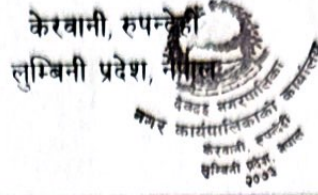 केरवानी, रुपन्देही
लुम्बिनी प्रदेश, नेपाल
देवदह नगरपालिका
नगर कार्यपालिकाको कार्यालय
केरवानी, रुपन्देही
लुम्बिनी प्रदेश, नेपाल
२०७३